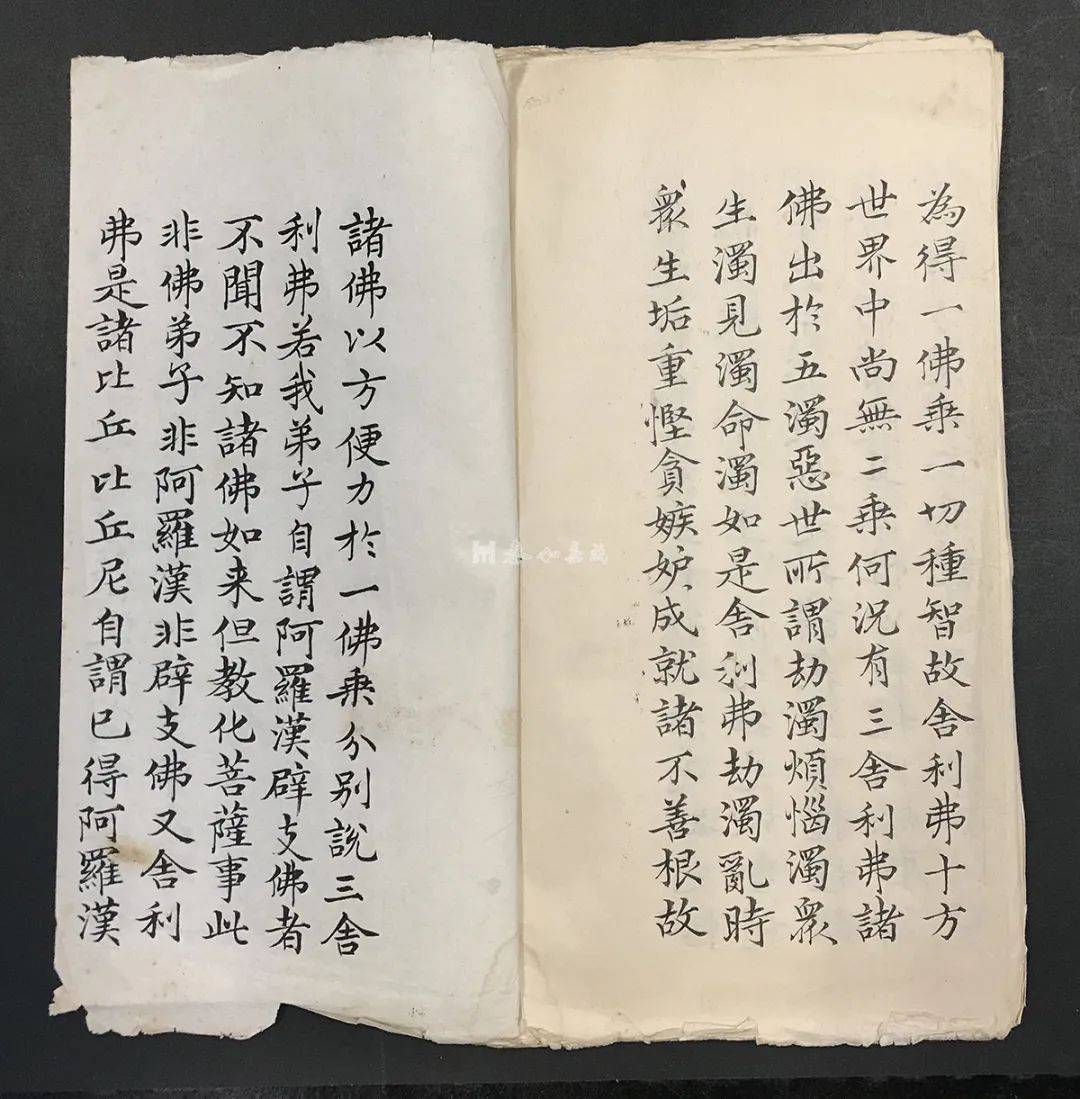 為得一佛乗一切種智故舎利弗十方
世界中尚無二乗何況有三舎利弗諸
佛出於五濁惡世所謂劫濁煩惱濁衆
生濁見濁命濁如是舎利弗劫濁亂時
衆生垢重慳貪嫉妒成就諸不善根故
諸佛以方便力於一佛乗分别說三舎
利弗若我弟子自謂阿羅漢辟支佛者
不聞不知諸佛如来但教化菩薩事此
非佛弟子非阿羅漢非辟支佛又舎利
弗是諸比丘比丘尼自謂已得阿羅漢